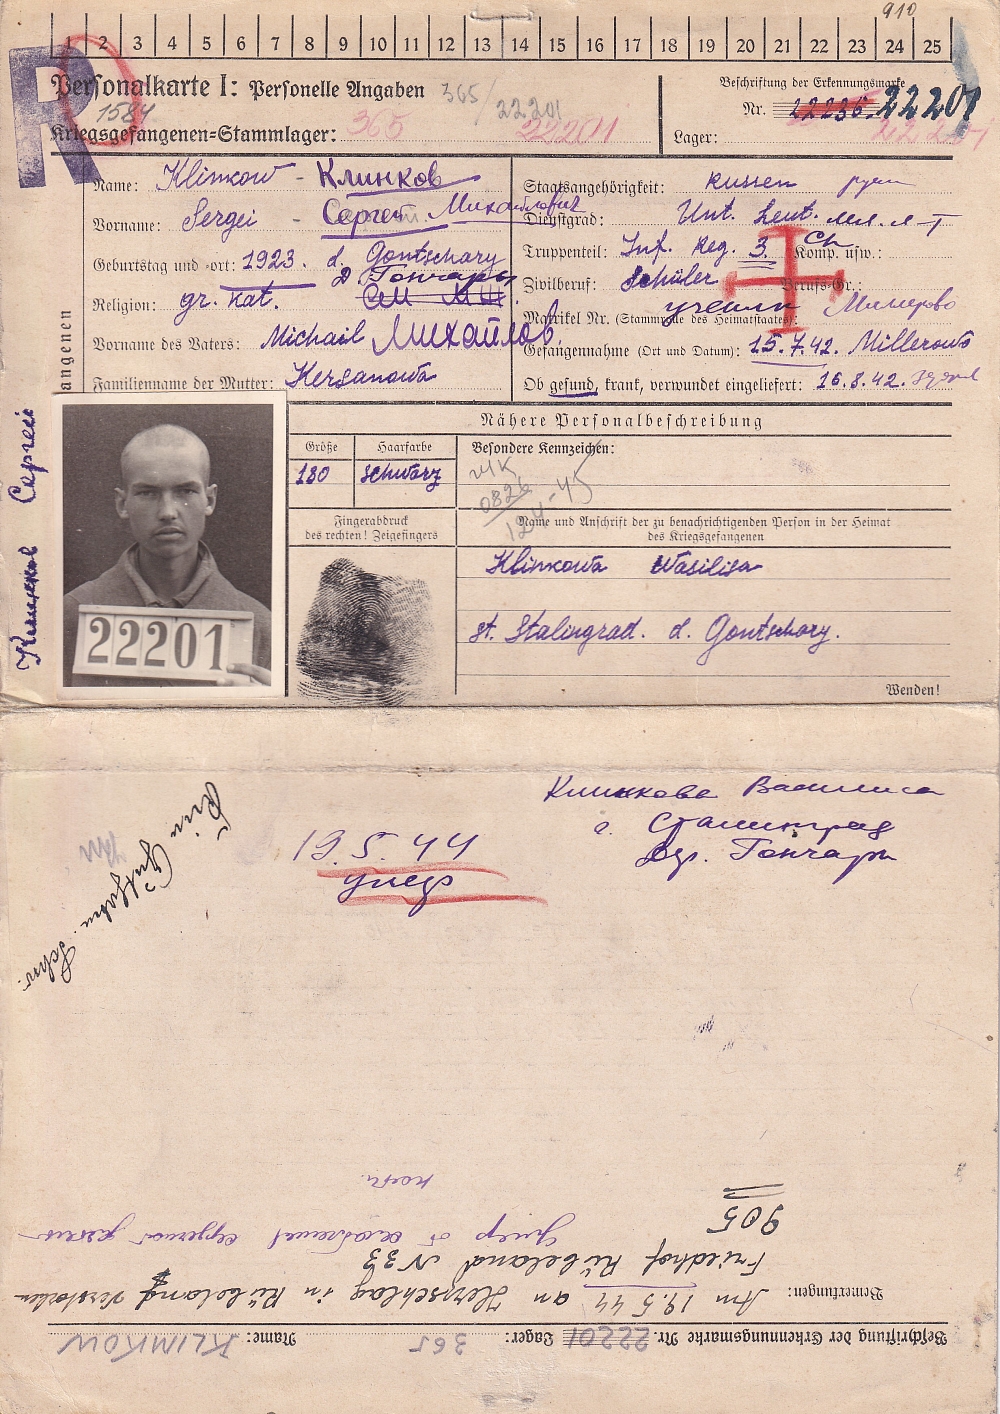 910
1 2 3 4 5 6 7 8 9 10 11 12 13 14 15 16 17 18 19 20 21 22 23 24 25
R
Personalkarte I: Personelle Angaben
365/22201
1584
Kriegsgefangenen-Stammlager: 365 22201
Beschriftung der Erkennungsmarke
Nr. 22236. 22201
Lager: 22201
Name: Klinkow - Клинков
Vorname: Sergei - Сергей Михайлович
Geburtstag und -ort: 1923. d. Gontschary
д Гончары
Religion: gr. kat.
Vorname des Vaters: Michail Михайлов.
Familienname der Mutter: Kersanowa
Staatsangehörigkeit: Russen русск
Dienstgrad: Unt. Leut. мл. л-т
Truppenteil: Inf. Reg. 3. Komp. usw.:
Zivilberuf: Schüler Berufs-Gr.:
Matrikel Nr. (Stammrolle des Heimatstaates): Миллерово
Gefangennahme (Ort und Datum): 15.7.42. Millerowo
Ob gesund, krank, verwundet eingeliefert: 16.8.42.
angenen
Клинков Сергей
22201
Nähere Personalbeschreibung
Größe Haarfarbe Besondere Kennzeichen:
180 schwarz
0826
124-45
Fingerabdruck
des rechten! Zeigefingers
Name und Anschrift der zu benachrichtigenden Person in der Heimat
des Kriegsgefangenen
Klinkowa Wasilisa
st. Stalingrad. d. Gontschary.
Wenden!
Клинкова Василиса
г. Сталинград
дер. Гончары
19.5.44
умер
Beschriftung der Erkennungsmarke Nr. 22201 Lager: 365 Name: KLIMKOW
Bemerkungen: Am 19.5.44 an Herzschlag in Rübeland verstorben
Friedhof Rübeland N 33
905
Умер от ослабления сердечной деятель
ности.